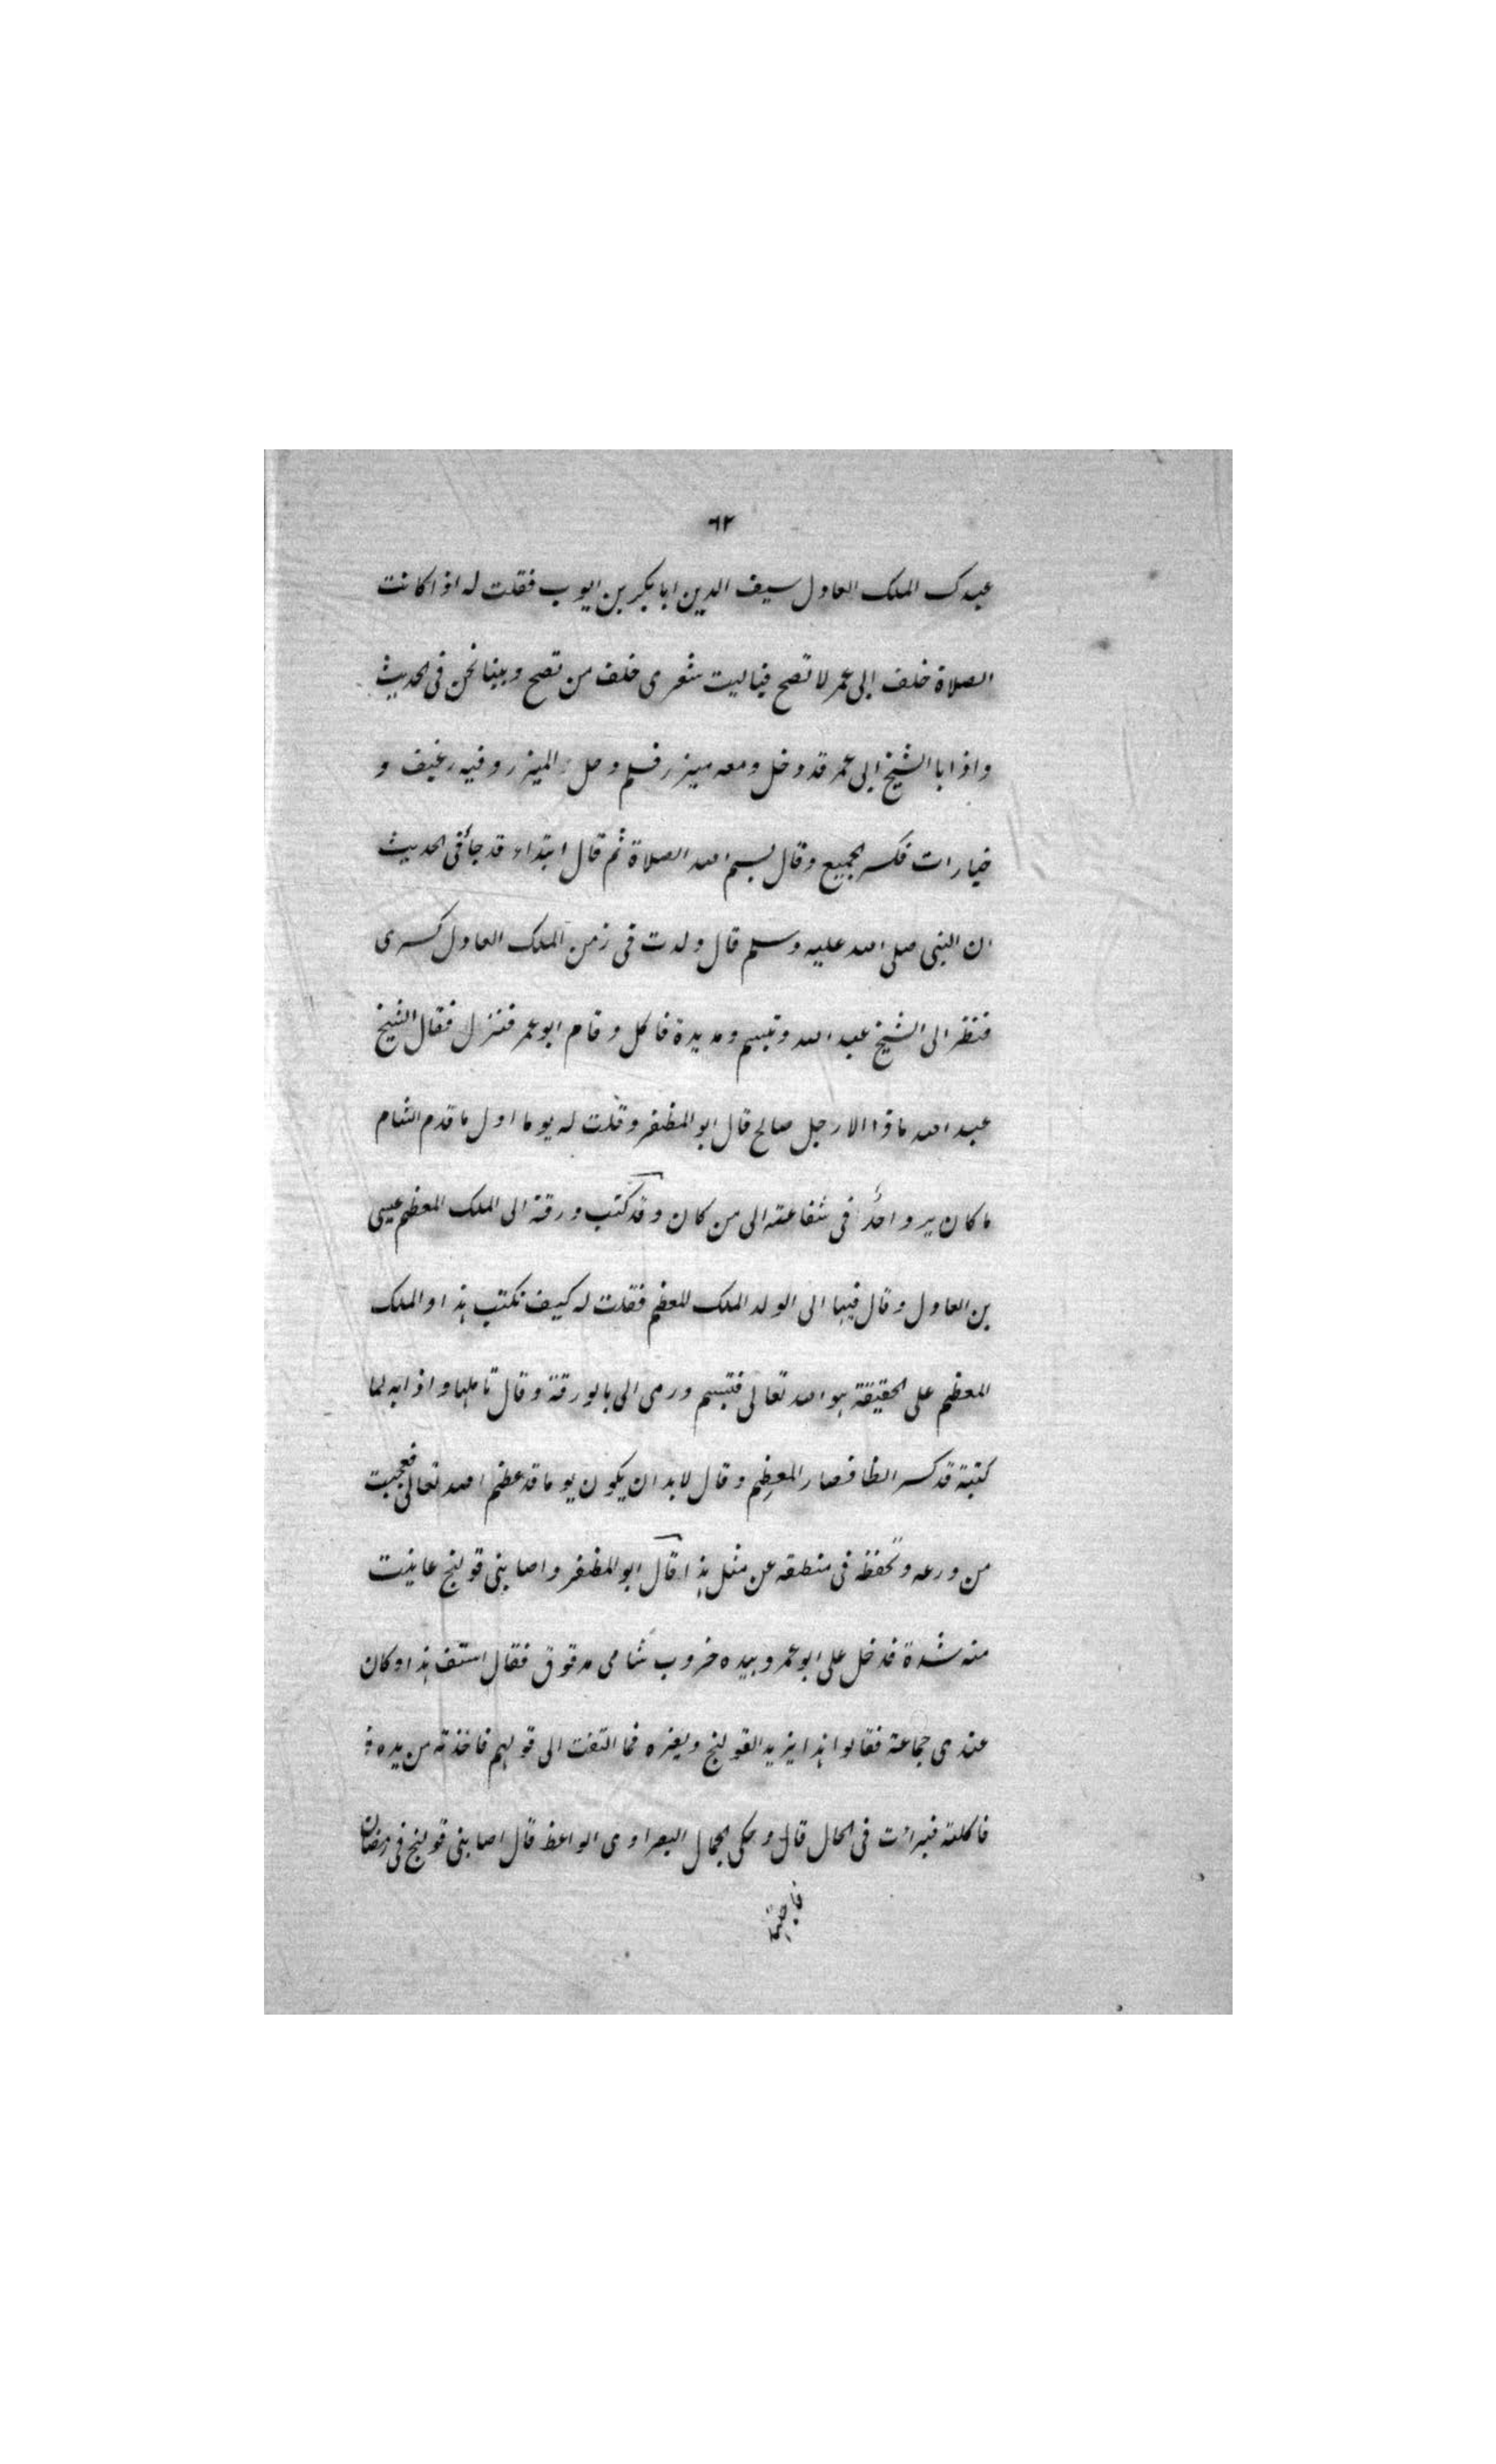 ٦٢
عبدك الملك العادل سيف الدين ابا بكر بن ايوب فقلت له اذا كانت
الصلاة خلف ابى عمر لا تصح فياليت شعرى خلف من تصح وبينا نحن فى الحديث
واذا بالشيخ ابى عمر قد دخل ومعه ميزر فسلم وحل الميزر وفيه رغيف و
خيارات فكسر الجميع وقال بسم الله الصلاة ثم قال ابتداء قد جأ فى الحديث
ان النبى صلى الله عليه وسلم قال ولدت فى زمن الملك العادل كسرى
فنظر الى الشيخ عبد الله وتبسم ومد يدة فاكل وقام ابو عمر فنزل فقال الشيخ
عبد الله ماذا الا رجل صالح قال ابو المظفر وقلت له يوما اول ما قدم الشام
ما كان يرد احدًا فى شفاعته الى من كان وقد كتب ورقة الى الملك المعظم عيسى
بن العادل وقال فيها الى الولد الملك المعظم فقلت له كيف تكتب هذا والملك
المعظم على الحقيقة هو الله تعالى فتبسم ورمى الى بالورقة وقال تاملها واذا به لما
كتبة قد كسر الظا فصار المعظِم وقال لابد ان يكون يوما قد عظم الله تعالى فعجبت
من ورعه وتحفظه فى منطقه عن مثل هذا قال ابو المظفر واصابنى قولنج عانيت
منه شدة فدخل على ابو عمر وبيده خروب شامى مدقوق فقال استف هذا وكان
عندى جماعة فقالوا هذا يزيد القولنج ويضره فما التفت الى قولهم فاخذته من يده
فاكلته فبرأت فى الحال قال وحكى الجمال البصراوى الواعظ قال اصابنى قولنج فى رمضان